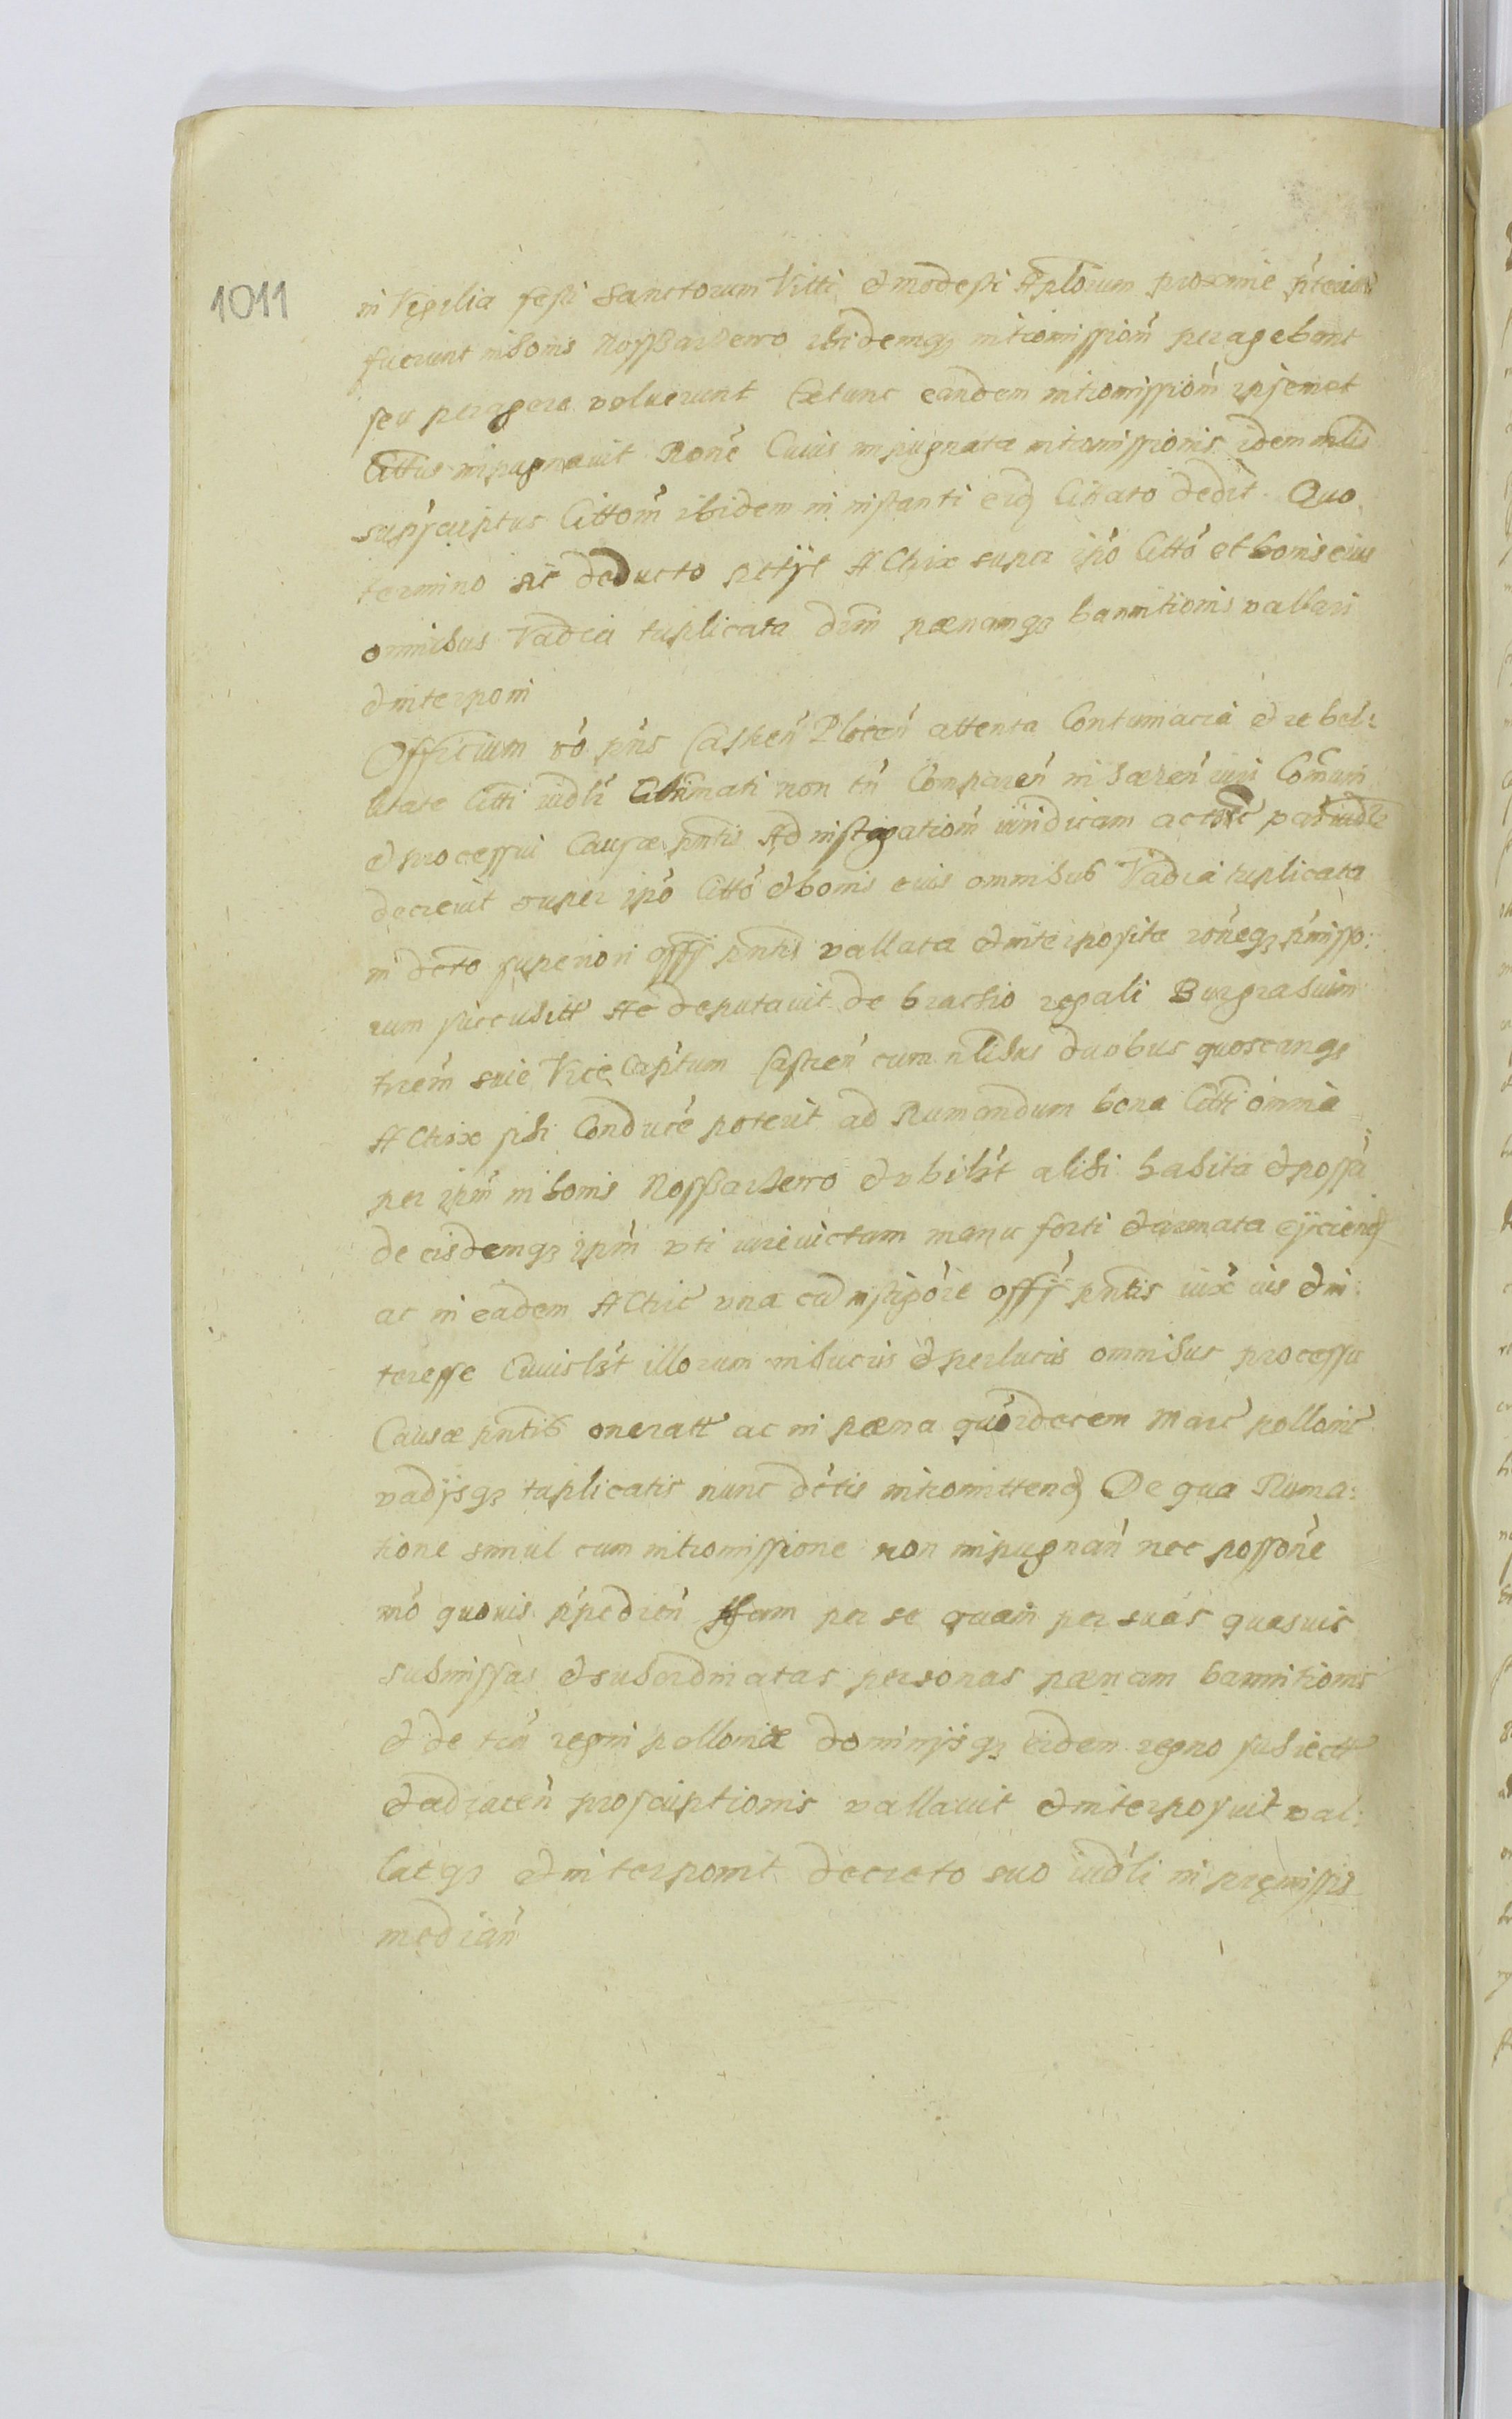 1011
in Vęgilia festi Sanctorum Vitti et modesti Aplorum proxime
fuerunt in bonis Rossßarzewo ibidemq3 intromissioni peragebant
seu peragere voluerunt Extunc eandem intromissioni ipsemet
Cittus inpugnavit Rone Cuius inpugnatæ intromissionis idem mlis
suprascriptus Cittoni ibidem in instanti eid Citato dedit. Quo
termino sic deducto petijt Actrix super ipo Citto et bonis eius
omnibus Vadia triplicata dim pænamq3 bannitionis vallari
et interponi
Officium vo pns Castren Plocen attenta Contumacia et rebel:
litate Citti iudlr non tn Comparen iuri Comuni
et processui Causæ pntis Ad instigationi iuridicam
decrevit super ipo Citto et bonis eius omnibus Vadia triplicata
in dcto superiori offy pntis vallata et interposita roneq3 pmisso:
rum succubitt Ac deputavit de brachio regali Burgrabium
trem sive Vice Captum Castren cum nlibus duobus quoscunq3
Actrix sibi Conduce poterit ad Rumandum bona Citti omnia
per ipm in bonis Rossßarzewo et ubilbt alibi habita et possa
de eisdemq3 ipm uti iurevictum manu forti et armata eijciend
ac in eadem Actric una cu instigore offy pntis iux ius et in:
teresse Cuiuslbt illorum in lucris et perlucris omnibus processu
Causæ pntis oneratt ac in pæna quordecem Marc pollonic
vadijsq3 triplicatis nunc dctis intromittend De qua Ruma:
tione simul cum intromissione non inpugnan nec possone
mo quovis ppedien tam per se quam per suas quasvis
submissas et subordinatas personas pænam bannitionis
et de tris regni polloniæ dominijsq3 eidem regno subiectt
et adiacen proscriptionis vallavit et interposuit val:
latq3 et interponit decreto suo iudli in pręmissis
median